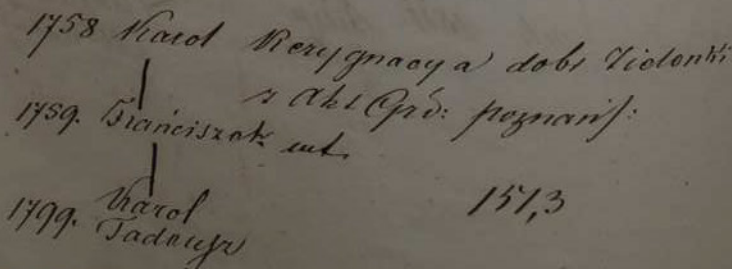 1758 Karol Rezygnacya dobr Zielonki
z Akt Grod: poznańs:
1759. Franciszek
1799. Karol
Tadeusz
151,3